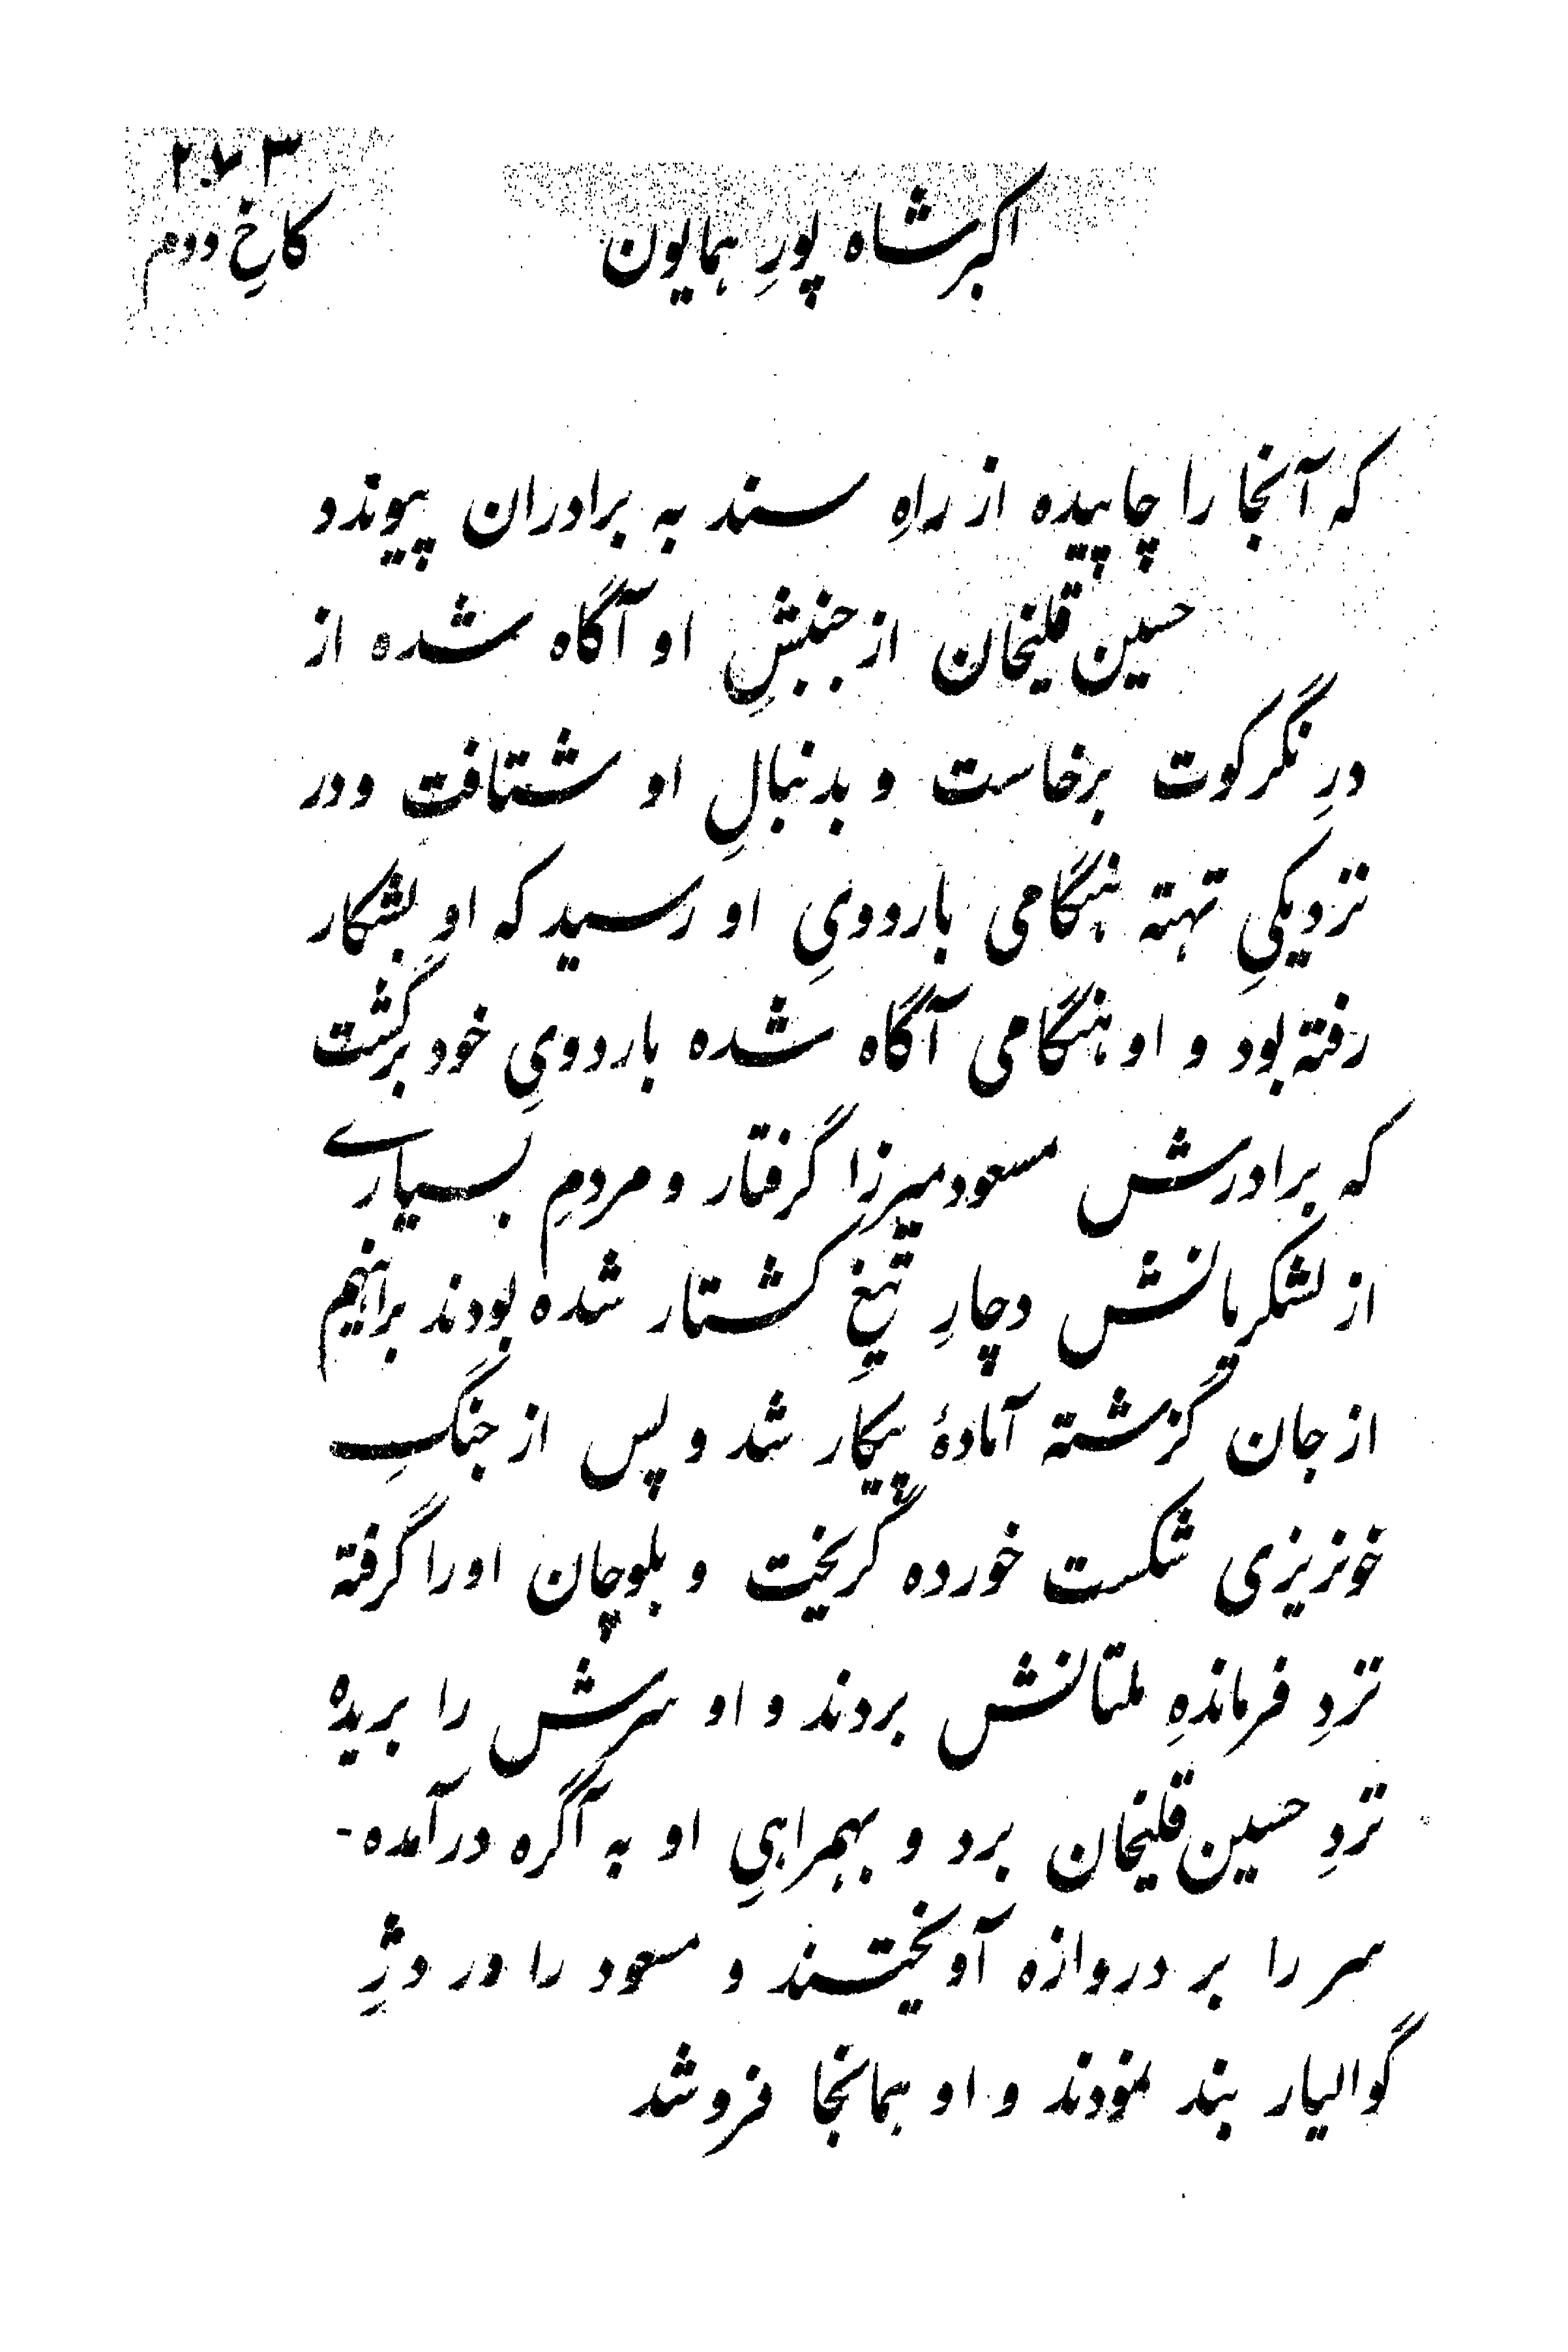 ۲۷۳
اکبرشاه پورِ همایون
کاخِ دوم
که آنجا را چاپیده از راهِ سند به برادران پیوندد
حسین قلیخان از جنبشِ او آگاه شده از
درِ نگرکوت برخاست و بدنبالِ او شتافت و در
نزدیکیِ تهته هنگامی باردویِ او رسید که او بشکار
رفته بود و او هنگامی آگاه شده باردویِ خود برگشت
که برادرش مسعود میرزا گرفتار و مردمِ بسیارے
از لشکریانش دچارِ تیغِ کشتار شده بودند براهیم
از جان گزشته آمادهٔ پیکار شد و پس از جنگِ
خونریزی شکست خورده گریخت و بلوچان او را گرفته
نزدِ فرماندهِ ملتانش بردند و او سرش را بریده
نزدِ حسین قلیخان برد و بهمراهیِ او به آگره درآمده -
سر را بر دروازه آویختند و مسعود را در دژِ
گوالیار بند نمودند و او همانجا فروشد